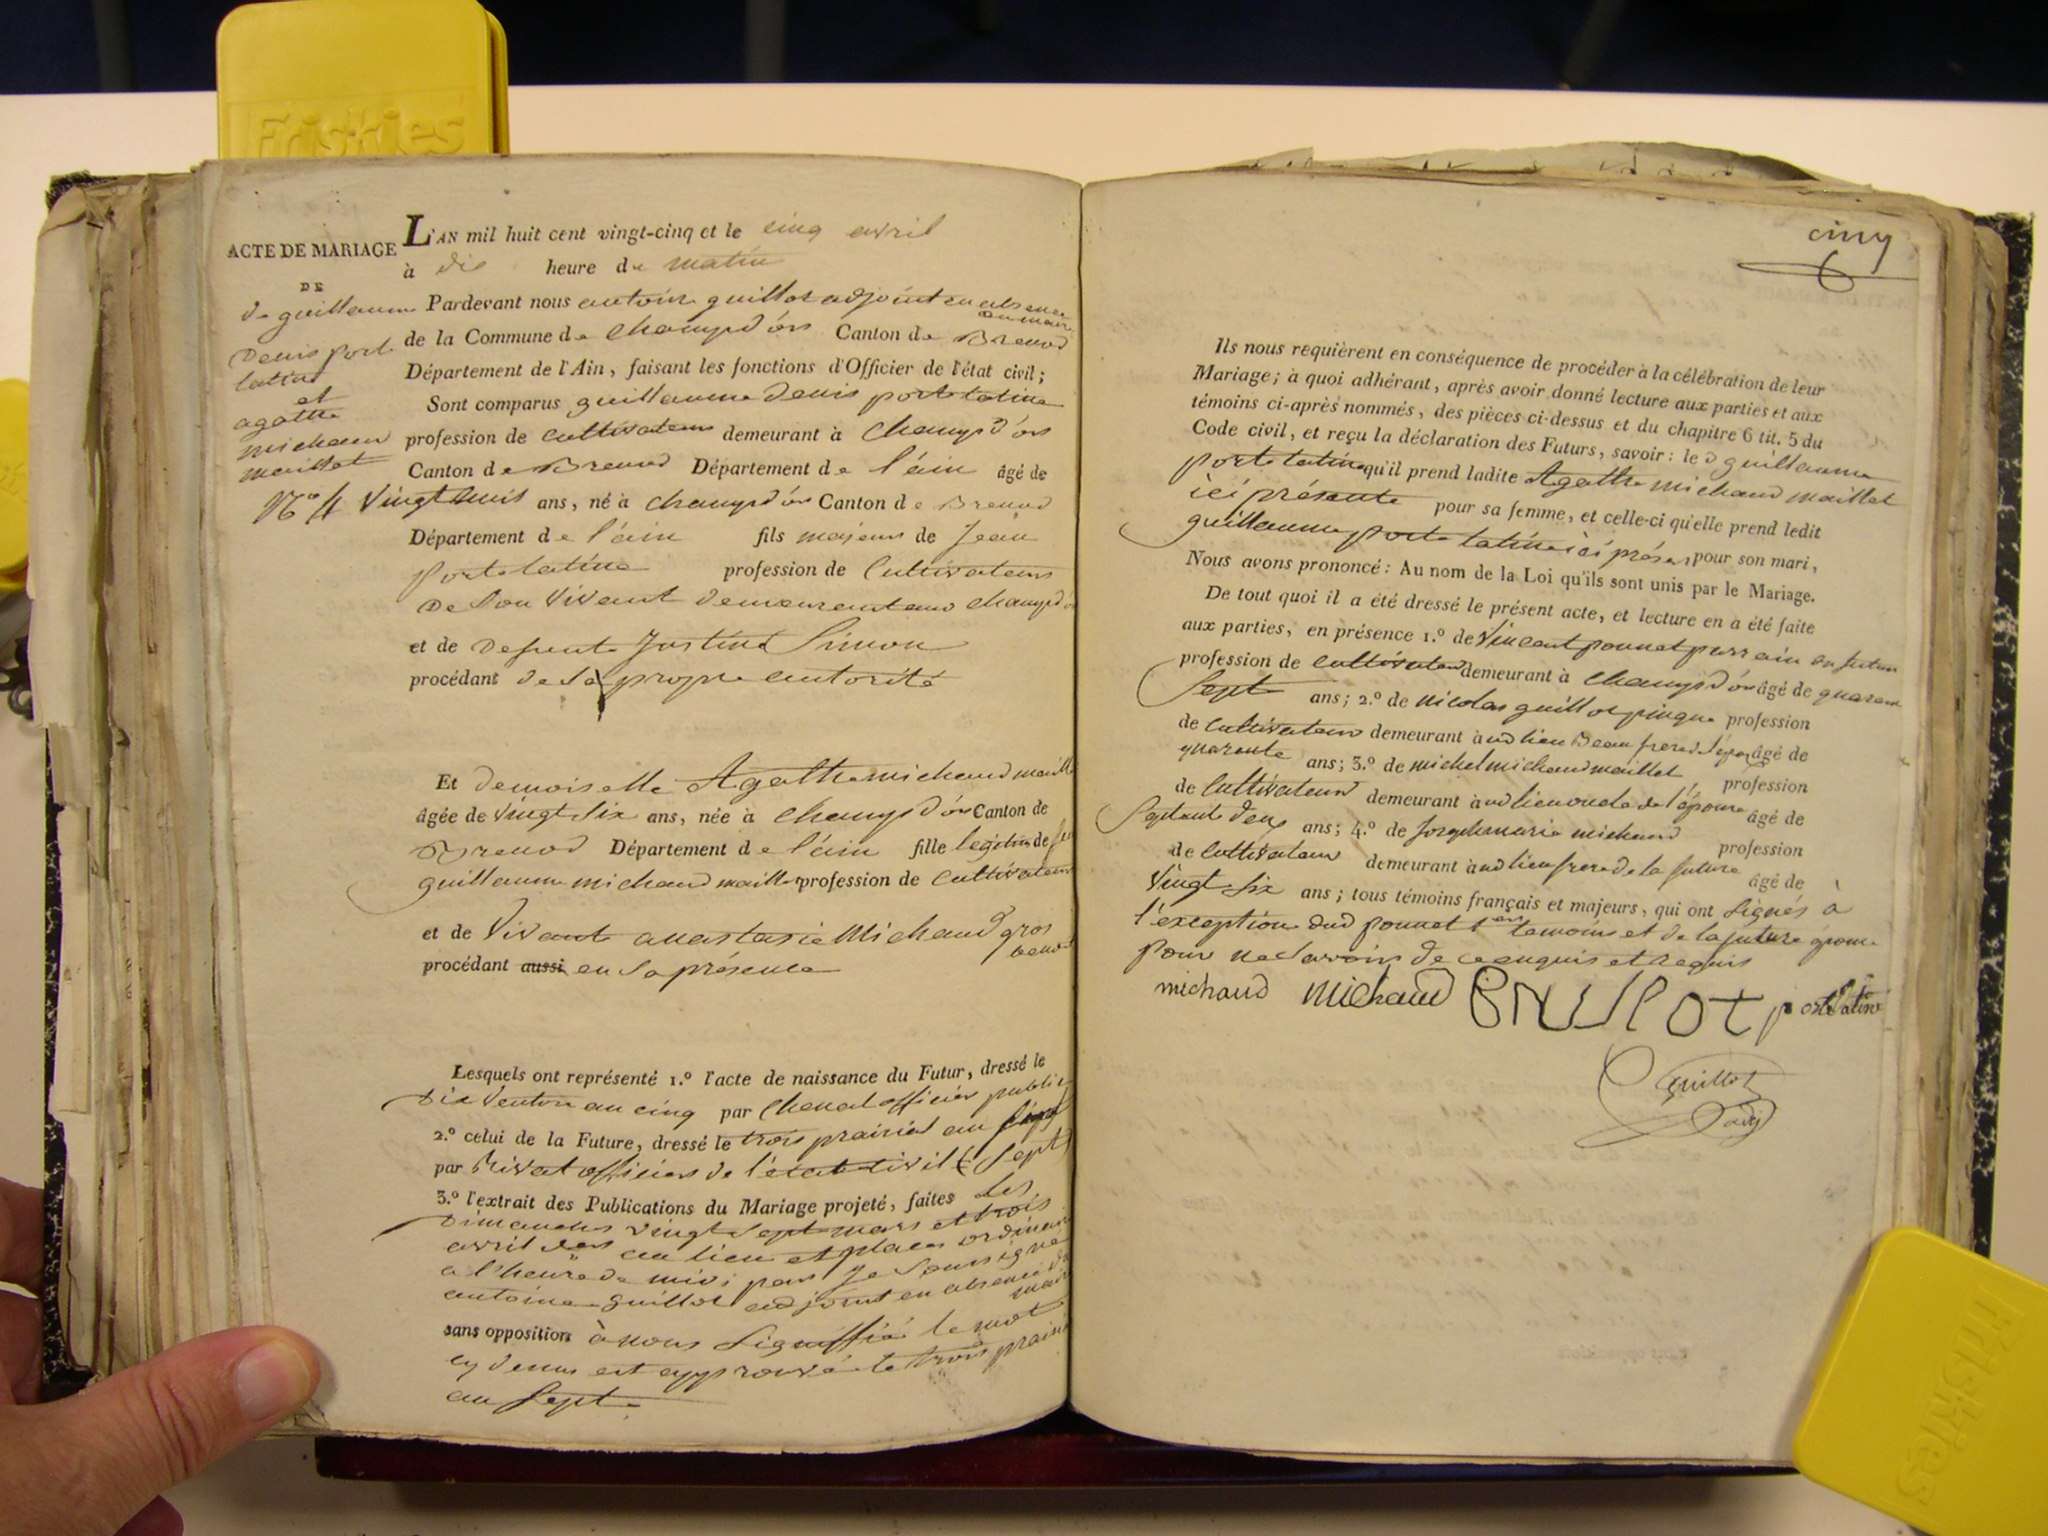 Friskies
ACTE DE MARIAGE
DE
de guillaume
Denis porte
latine
et
agathe
michaud
maillet
N.º 4
L'AN mil huit cent vingt-cinq et le cinq avril
à dix heure de matin
Pardevant nous antoine guillot adjoint en absence
du maire
de la Commune de champd'or Canton de Brenod
Département de l'Ain, faisant les fonctions d'Officier de l'état civil;
Sont comparus guillaume Denis porte latine
profession de cultivateur demeurant à champd'or
Canton de Brenod Département de l'ain âgé de
vingt huit ans, né à champd'or Canton de Brenod
Département de l'ain fils majeur de Jean
porte latine profession de cultivateur
De son vivant demeurant au champd'or
et de Defunte Justine Simon
procédant de sa propre autorité
Et demoiselle Agathe michaud maillet
âgée de vingt six ans, née à champd'or Canton de
Brenod Département de l'ain fille légitime de feu
guillaume michaud maillet profession de cultivateur
et de Vivante anastasie Michaud gros
procédant aussi en sa présence
Lesquels ont représenté 1.º l'acte de naissance du Futur, dressé le
Dix ventose an cinq par chenal officier public
2.º celui de la Future, dressé le trois prairial an
par Rivat officier de l'état civil (sept)
3.º l'extrait des Publications du Mariage projeté, faites Les
Dimanches vingt sept mars et trois
avril aux lieu et place ordinaire
a l'heure de midi par Je soussigné
antoine guillot adjoint en absence du
maire
sans opposition à nous signiffié le mot
cy dessus est approuvé le trois prairial
an sept
cinq
Ils nous requièrent en conséquence de procéder à la célébration de leur
Mariage; à quoi adhérant, après avoir donné lecture aux parties et aux
témoins ci-après nommés, des pièces ci-dessus et du chapitre 6 tit. 5 du
Code civil, et reçu la déclaration des Futurs, savoir: le d guillaume
porte latine qu'il prend ladite Agathe michaud maillet
ici présente pour sa femme, et celle-ci qu'elle prend ledit
guillaume porte latine ici présent pour son mari,
Nous avons prononcé: Au nom de la Loi qu'ils sont unis par le Mariage.
De tout quoi il a été dressé le présent acte, et lecture en a été faite
aux parties, en présence 1.º de Vincent ponnet parrain du futur
profession de cultivateur demeurant à champd'or âgé de quarante
sept ans; 2.º de nicolas guillot pingue profession
de cultivateur demeurant à ud lieu Beau frere de l'époux âgé de
quarante ans; 3.º de michel michaud maillet profession
de cultivateur demeurant à ud lieu oncle de l'épouse âgé de
Septante deux ans; 4.º de Joseph marie michaud profession
de cultivateur demeurant à ud lieu frere de la future âgé de
vingt six ans; tous témoins français et majeurs, qui ont signés à
l'exception dud ponnet 1er temoins et de la future épouse
pour ne savoir de ce enquis et requis
michaud michaud GNILLOT porte latine
guillot
adj
Friskies